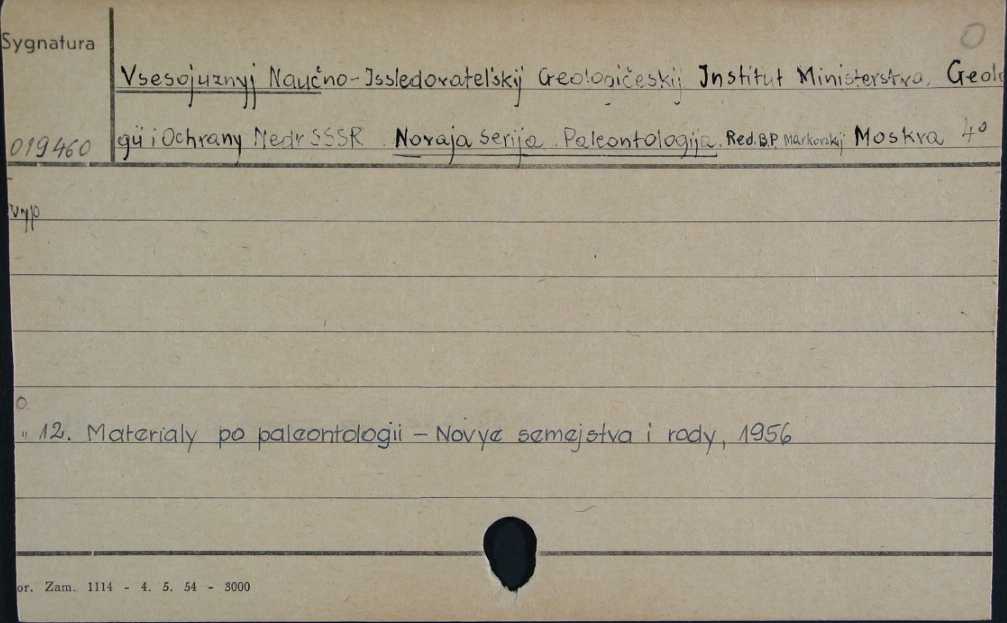 Sygnatura
0
Vsesojuznyj Naučno-Issledovatel'skij Geologičeskij Institut Ministerstva Geolo
019460 gii i Ochrany Nedr SSSR. Novaja Serija. Paleontologija. Red. B.P. Markovskij Moskva 4°
vyp
0
" 12. Materialy po paleontologii – Novye semejstva i rody, 1956
or. Zam. 1114 - 4. 5. 54 - 3000